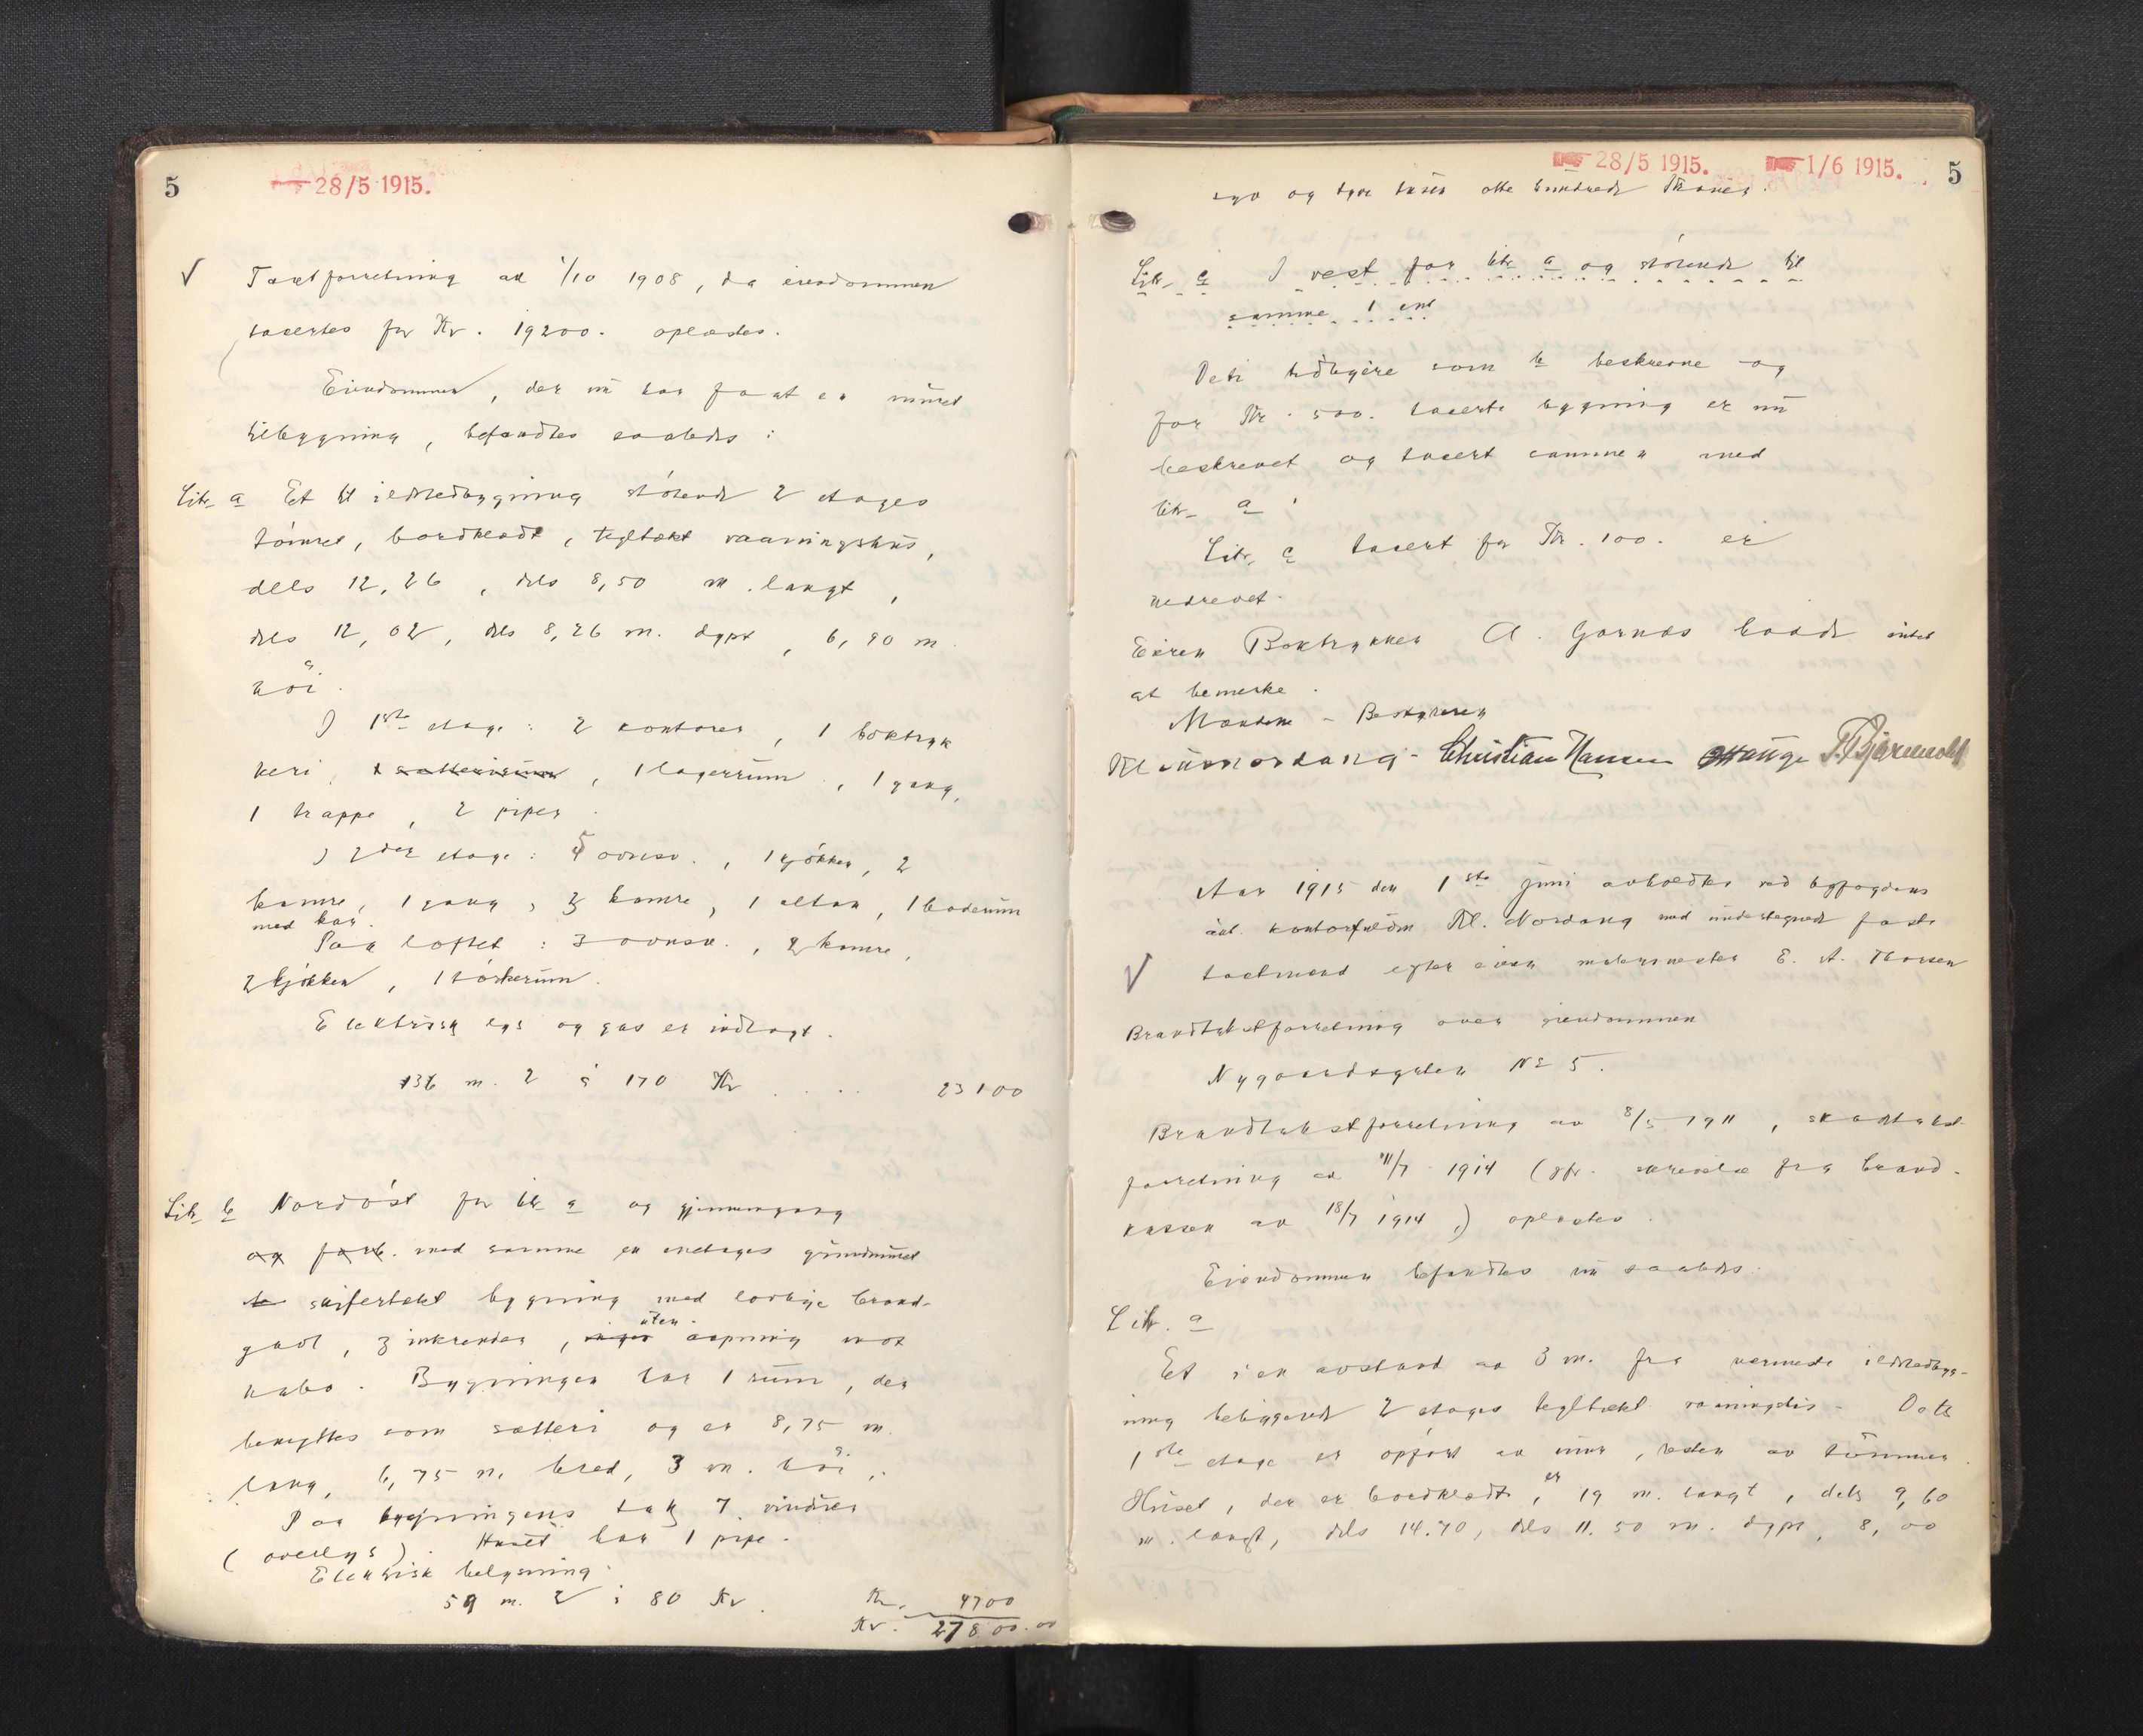 5
28/5 1915.
Taxtforretning av 1/10 1908, da eiendommen
taxertes for Kr. 19200. oplæstes.
Eiendommen, der nu har faat en muret
tilbygning, befandtes saaledes:
Litr. a Et til ildstedbygning stötende 2 etages
tömret, bordklædt, tegltækt vaaningshus,
dels 12,26, dels 8,50 m. langt,
dels 12,02, dels 8,26 m. dypt, 6,90 m.
höi.
I 1ste etage: 2 kontorer, 1 boktryk
keri, 1 sætterirum, 1 lagerrum, 1 gang,
1 trappe, 2 piper.
I 2den etage: 5 ovnsv., 1 kjökken, 2
kamre, 1 gang, 3 kamre, 1 altan, 1 baderum
med kar.
Paa loftet: 3 ovnsv., 2 kamre,
2 kjökken, 1 törkerum.
Elektrisk lys og gas er indlagt.
136 m. 2 à 170 Kr . . . . 23100
Litr. b Nordöst for litr. a og gjennemgang
og forb. med samme en enetages grundmuret
skifertækt bygning med lovlige brand-
gavl, zinkrender, uten aapning mot
nabo. Bygningen har 1 rum, der
benyttes som sætteri og er 8,75 m.
lang, 6,75 m. bred, 3 m. höi.
Paa bygningens tak 7 vinduer
(overlys). Huset har 1 pipe.
Elektrisk belysning.
59 m. 2 à 80 Kr. Kr. 4700
Kr. 27800.00
28/5 1915. 1/6 1915. 5
syv og tyve tusen otte hundrede Kroner.
Litr. c I vest for litr. a og stötende til
samme 1 
Det tidligere som b beskrevne og
for Kr. 500. taxerte bygning er nu
beskrevet og taxert sammen med
litr. a.
Litr. c taxert for Kr. 100. er
nedrevet.
Eieren Boktrykker A. Garnæs havde intet
at bemerke.
Mændene - Bestyreren
Kl. Nordang - Christian Hansen
Aar 1915 den 1ste juni avholdtes ved byfogdens
aut. kontorfuldm. Kl. Nordang med undertegnede faste
taxtmænd efter av malermester E. A. Thorsen
Brandtakstforretning over eiendommen
Nygaardsgaten No 5.
Brandtakstforretning av 8/5 1911, skadtakst-
forretning av 11/7 1914 (jfr. skrivelse fra brand-
kassen av 18/7 1914,) oplæstes.
Eiendommen befandtes nu saaledes.
Litr. a
Et i en avstand av 3 m. fra nærmeste ildstedbyg-
ning beliggende 2 etages tegltækt vaaningshus. Dets
1ste etage er opfört av mur, resten av tömmer.
Huset, der er bordklædt, er 19 m. langt, dels 9,60
m. langt, dels 14.70, dels 11.50 m. dypt, 8,00